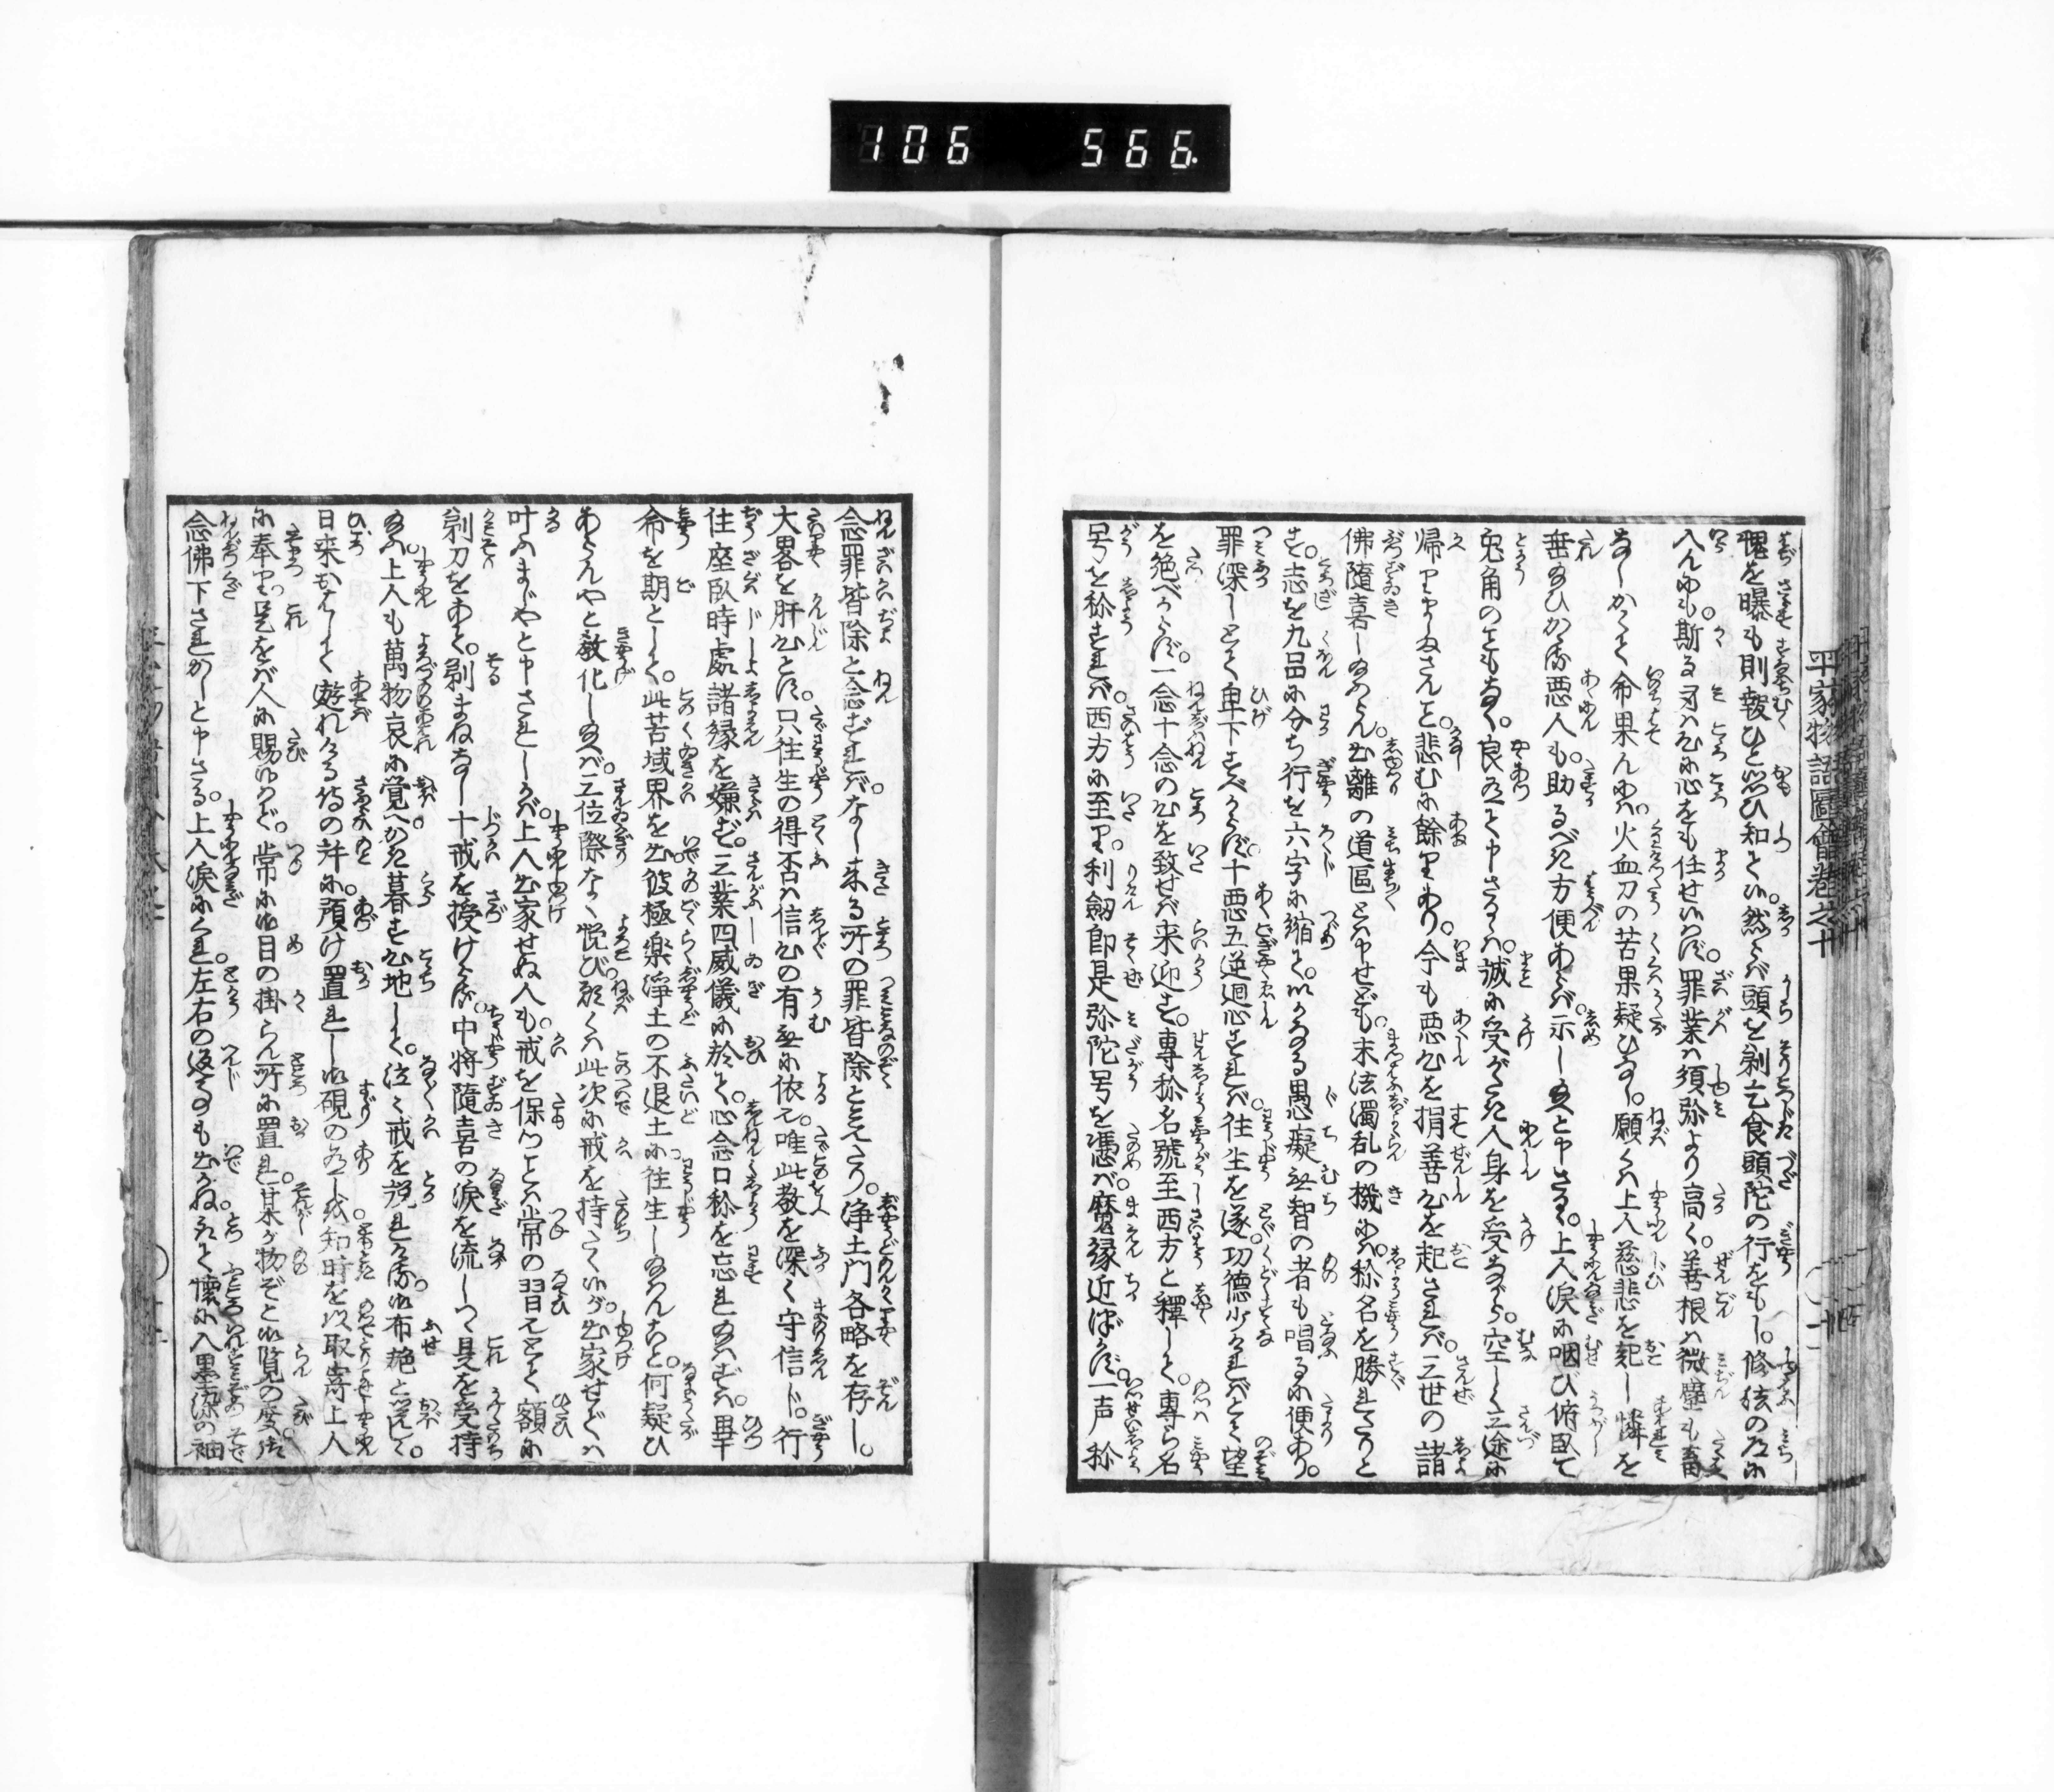 106 566.
平家物語圖會巻之十
愧を曝も則報ひと思ひ知て候。然らば頭を剃乞食頭陀の行をもし。修の道に
入んにも。斯る身は心に心をも任せ候はず。罪業は須弥より高く。善根は微塵も畜
なし。かくて命果んにハ。火血刀の苦果疑ひなし。願くは上人慈悲を起し憐を
垂給ひかゝる悪人も。助るべき方便あらバ。示し給へと申さる。上人涙に咽び俯臥て
兎角のこともなく。良有て申さるゝハ。誠に受がたき人身を受ながら。空しく三途に
帰り申給さんこと。悲むに餘りあり。今も悪心を捐善心を起されバ。三世の諸
佛隨喜し給ふらん。出離の道區とは申せども。末法濁乱の機にハ。称名を勝れたりと
す。志を九品に分ち行を六字に縮て。いかなる愚癡無智の者も唱るに便あり。
罪深しとて卑下すべからず。十悪五逆廻心すれバ。往生を遂。功徳少なければとて望
を絶べからず。一念十念の心を致せバ来迎す。専称名號至西方と釋して。専ら名
号を称すれバ。西方に至り。利劔即是弥陀号を憑バ。魔縁近づかず。一声称
念罪皆除と念ずれバ。なし来る所の罪皆除とみえたり。浄土門各略を存し。
大畧を肝心とす。只往生の得否は信心の有無に依る。唯此教を深く守信じ。行
住座臥時處諸縁を嫌ず。三業四威儀に於て。心念口称を忘れ給はずハ。畢
命を期として。此苦域界を出。彼極楽浄土の不退土に。往生し給はんこと。何疑ひ
あらんやと教化し給へバ。三位際なく悦び願くは此次に戒を持たく候が。出家せでは
叶ふまじやと申されしかバ。上人出家せぬ人も。戒を保つことは常の習也とて額に
剃刀をあて。剃まねなし十戒を授けらる。中将隨喜の涙を流しつゝ是を受持
給ふ。上人も萬物哀に覚へかき暮す心地して。泣々戒を説れける。御布施と覚て。
日来おはして遊れける侍の許に。預け置れし御硯の有しを。知時を以取寄上人
に奉り。是をバ人に賜候はで。常に御目の掛らん所に置れ。某が物ぞと御覧の度に。
念佛下されかしと申さる。上人涙にくれ。左右の返事も出かね。取て懐に入墨染の袖